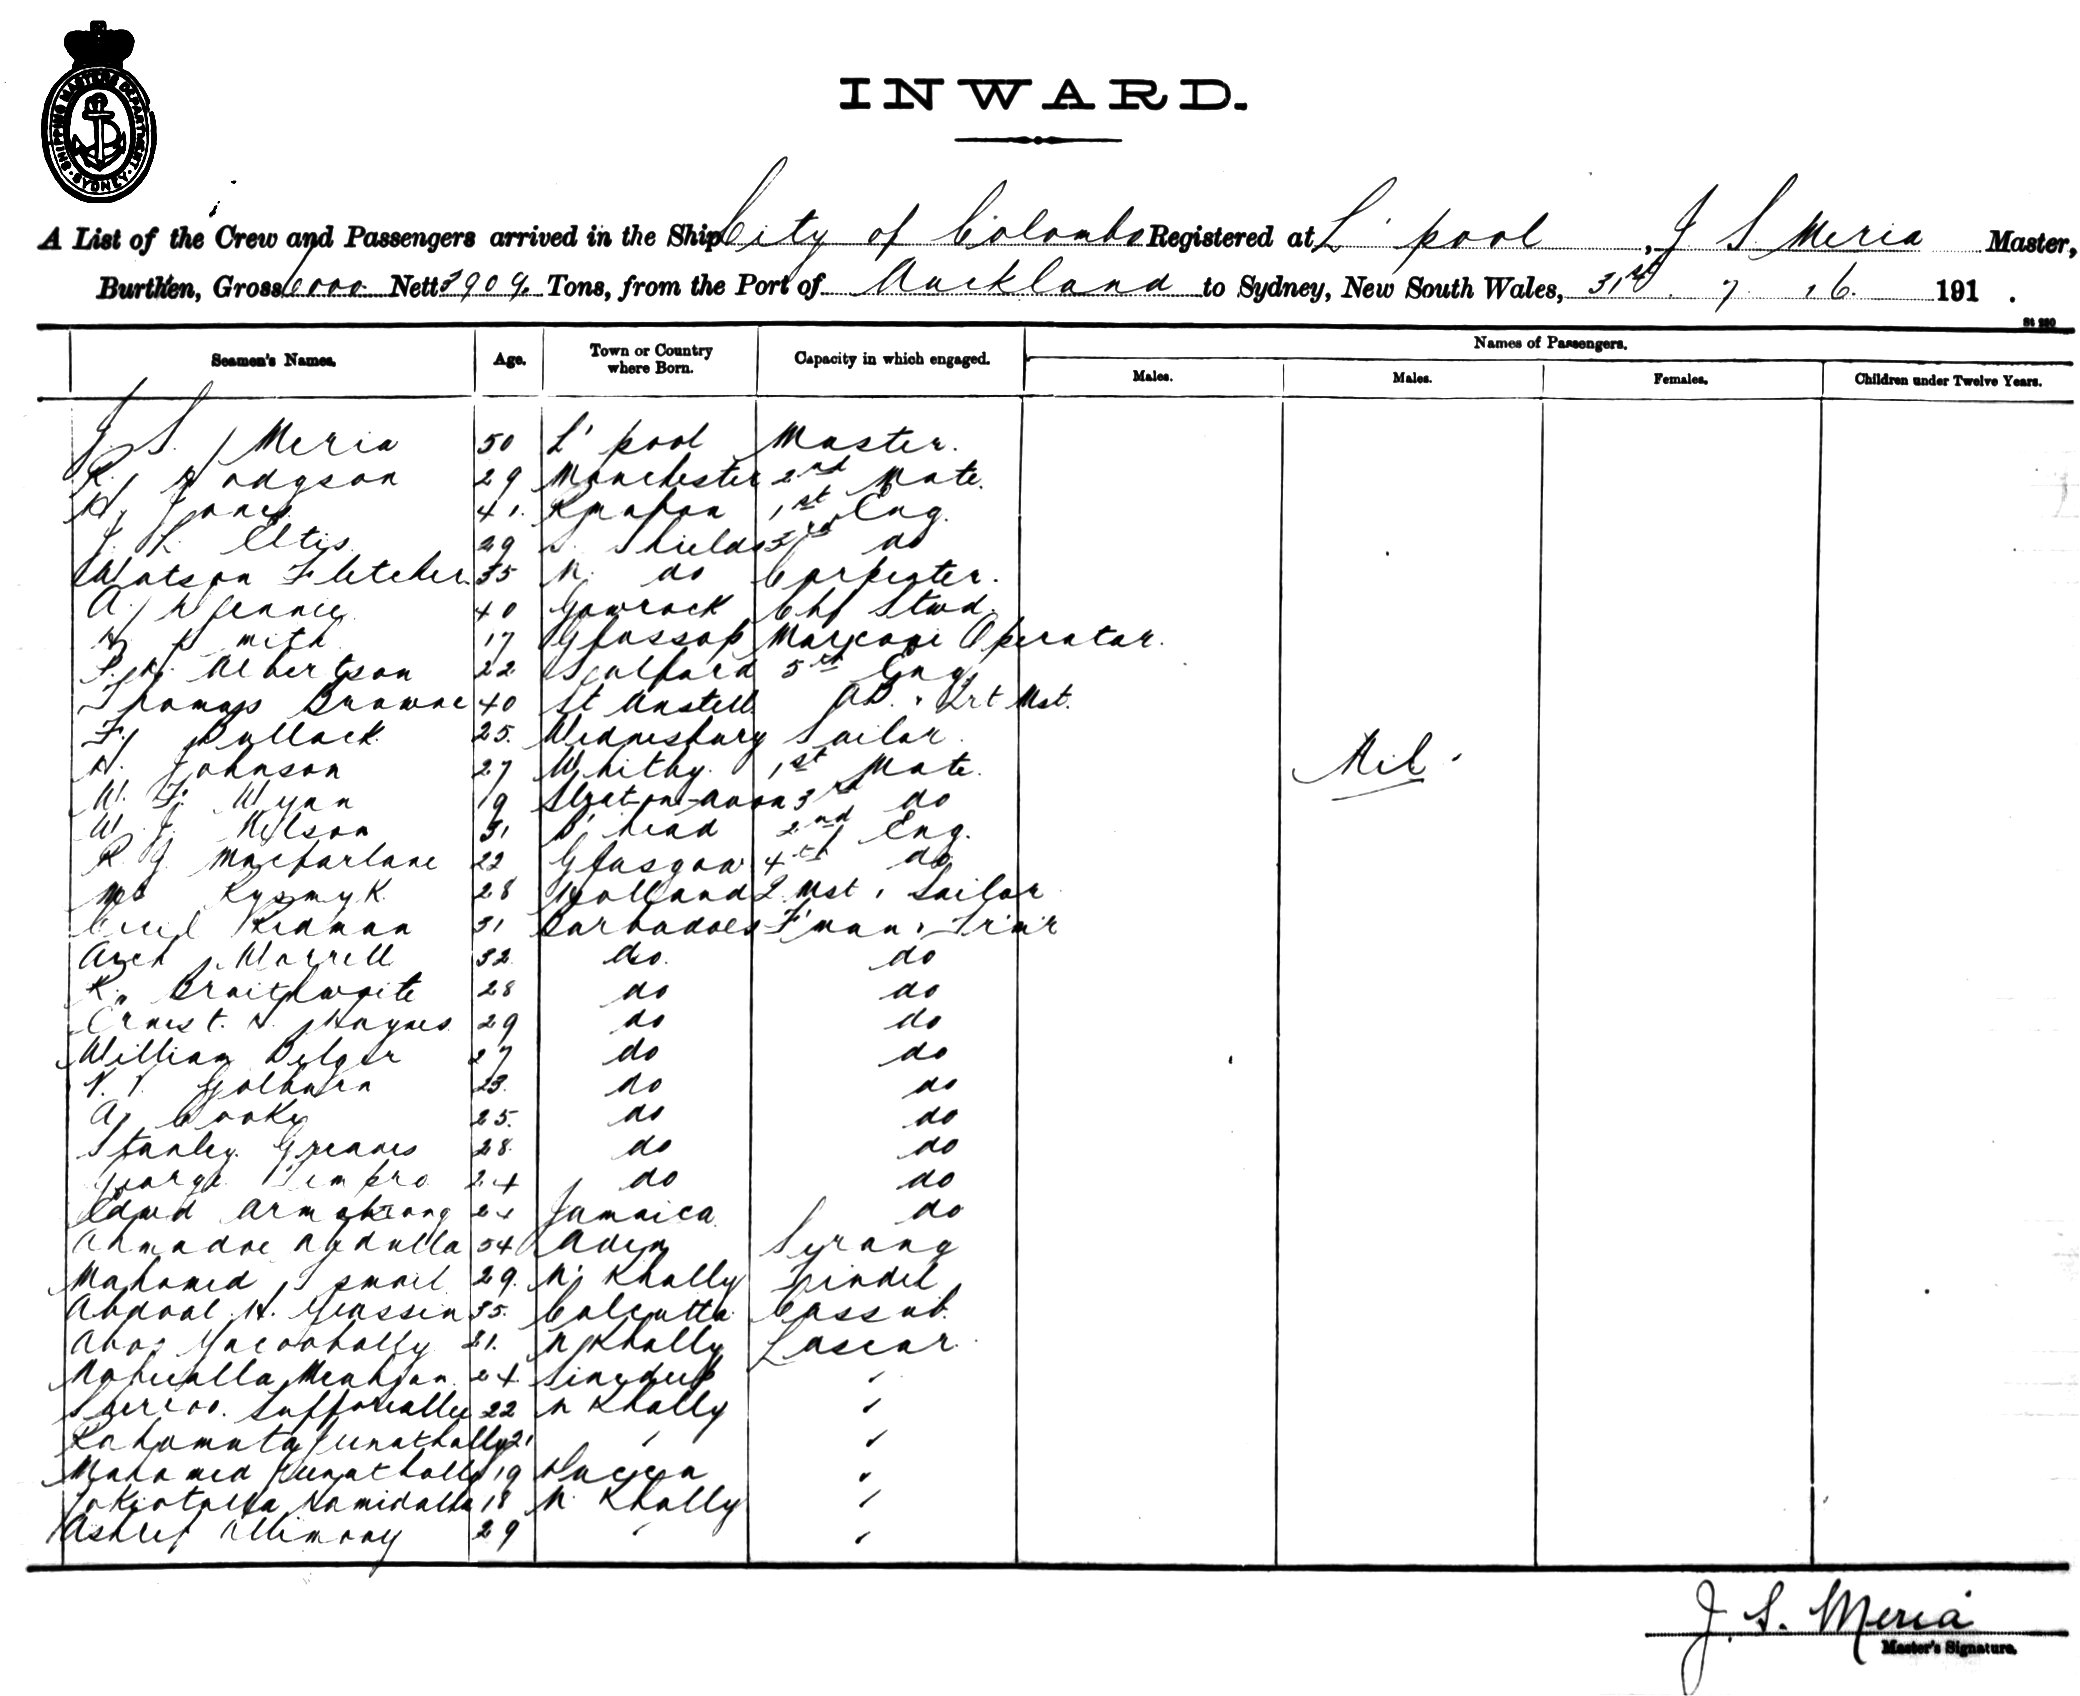 SHIPPING MASTERS DEPARTMENT
SYDNEY
INWARD.
A List of the Crew and Passengers arrived in the Ship City of Colombo Registered at L'pool, J S Meria Master,
Burthen, Gross 6000 Nett 3909 Tons, from the Port of Auckland to Sydney, New South Wales, 31st 7 16 191 .
St 280
Seamen's Names. Age. Town or Country where Born. Capacity in which engaged. Names of Passengers.
Males. Males. Females. Children under Twelve Years.
J. S. Meria 50 L'pool Master.
R. Hodgson 29 Manchester 2nd Mate.
H. Jones 41. Ruabon 1st Eng.
J. L. Eltis 29 S. Shields 3rd do
Watson Fletcher 35 N. do Carpenter.
A. 40 Gowrock Chf Stwd.
H Smith 17 Glossop Marconi Operator.
Albertson 22 Salford 5th Eng
Thomas Browne 40 St Austell AB. Qrt Mst.
F. Bullock 25. Wednesbury Sailor.
H. Johnson 27 Whitby. 1st Mate.
W. F. Wynn 19 Strat-on-Avon 3rd do
W. J. Wilson 31 B'head 2nd Eng.
R. J. Macfarlane 22 Glasgow 4th do
28 Holland Q Mst, Sailor
Cecil Redman 31 Barbadoes F'man, Trim'r
Arch Worrell 32 do. do
R. Braithwaite 28 do do
Ernest. H. Haynes 29 do do
William Belgar 27 do do
Golburn 23. do do
A. Cooke 25. do do
Stanley Greaves 28. do do
George 24 do do
Edwd Armstrong 24 Jamaica do
Ahmadoe Abdulla 54 Aden Syrang
Mahomed Ismail 29. N. Khally Tindel
Abdool H. 35. Calcutta Cassab.
21. N Khally Lascar.
24 "
22 N Khally "
21 " "
Mahomed 19 Dacca "
18 N. Khally "
29 " "
Nil.
J. S. Meria
Master's Signature.